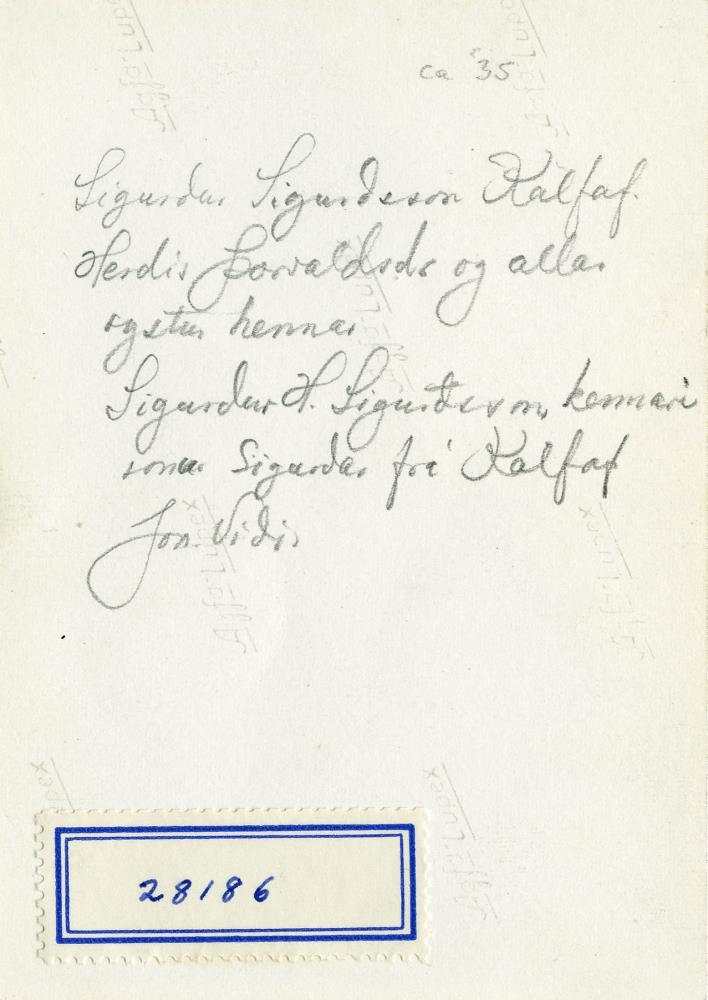 ca '35
Sigurdur Sigurdsson Kálfaf.
Herdis Þorvaldsd. og allar
systur hennar
Sigurdur H. Sigurdsson, kennari
sonur Sigurdar frá Kálfaf
Jón Vidis
Agfa-Lupex
28186